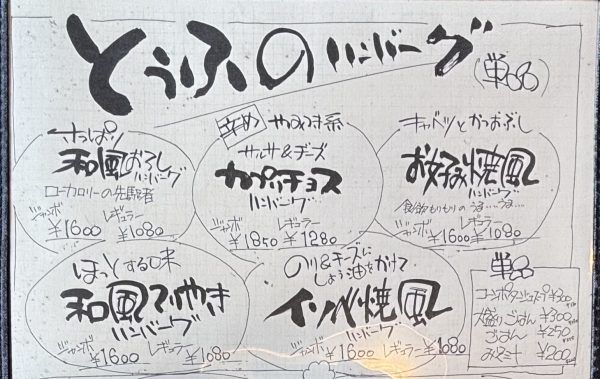 とうふのハンバーグ(単品)
さっぱり
和風おろし
ハンバーグ
ローカロリーの先駆者
ジャンボ レギュラー
¥1600 ¥1080
辛め やみつき系
サルサ&チーズ
カプリチョス
ハンバーグ
ジャンボ レギュラー
¥1850 ¥1280
キャベツとかつおぶし
お好み焼風
ハンバーグ
食欲もりもりのうま……うま……
ジャンボ レギュラー
¥1600 ¥1080
ほっとする味
和風てりやき
ハンバーグ
ジャンボ レギュラー
¥1600 ¥1080
のり&チーズに
しょう油をかけて
イソベ焼風
ハンバーグ
ジャンボ レギュラー
¥1600 ¥1080
単品
コーンポタージュスープ
大盛りごはん ¥300
ごはん ¥250
みそ汁 ¥200